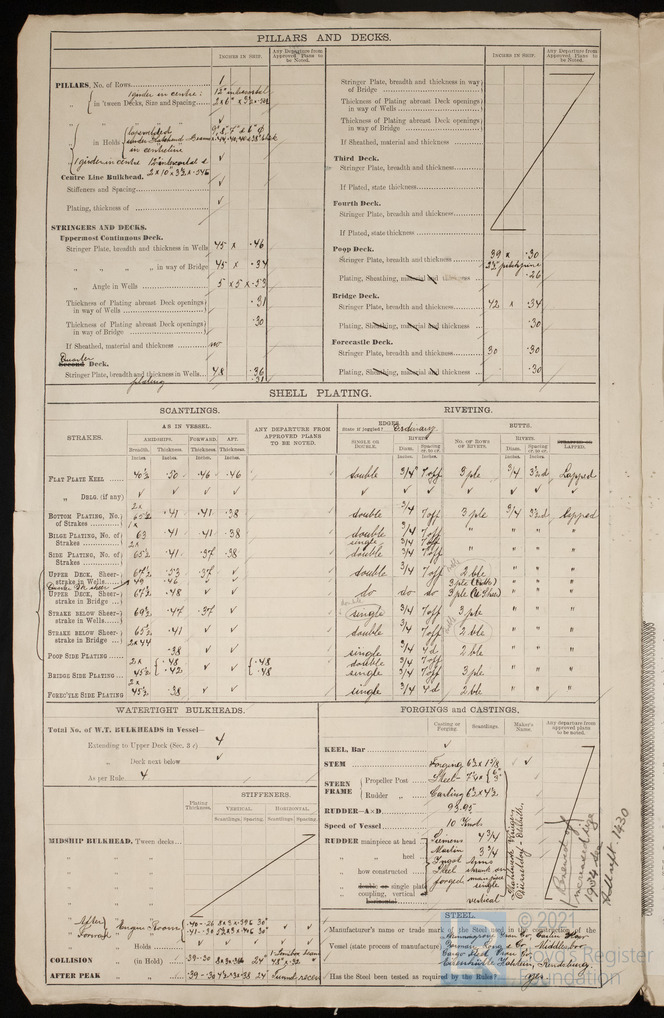 PILLARS AND DECKS.
INCHES IN SHIP.
Any Departure from Approved Plans to be Noted.
PILLARS, No. of Rows 1
1 girder in centre: 12" intercostal
„ in 'tween Decks, Size and Spacing 2 x 6" x 3½ x .342
„ in Holds
in centreline
1 girder in centre 12" intercostal &
2 x 10 x 3½ x .346
Centre Line Bulkhead.
Stiffeners and Spacing ✓
Plating, thickness of ✓
STRINGERS AND DECKS.
Uppermost Continuous Deck.
Stringer Plate, breadth and thickness in Wells 45 x .46
„ „ „ „ in way of Bridge 45 x .34
„ Angle in Wells 5 x 5 x .53
Thickness of Plating abreast Deck openings in way of Wells .31
Thickness of Plating abreast Deck openings in way of Bridge .30
If Sheathed, material and thickness no
Quarter Deck.
Stringer Plate, breadth and thickness in Wells 48 .36
plating .31
INCHES IN SHIP.
Any Departure from Approved Plans to be Noted.
Stringer Plate, breadth and thickness in way of Bridge
Thickness of Plating abreast Deck openings in way of Wells
Thickness of Plating abreast Deck openings in way of Bridge
If Sheathed, material and thickness
Third Deck.
Stringer Plate, breadth and thickness
If Plated, state thickness
Fourth Deck.
Stringer Plate, breadth and thickness
If Plated, state thickness
Poop Deck.
Stringer Plate, breadth and thickness 39 x .30
2½ pitchpine
Plating, Sheathing, material and thickness .26
Bridge Deck.
Stringer Plate, breadth and thickness 42 x .34
Plating, Sheathing, material and thickness .30
Forecastle Deck.
Stringer Plate, breadth and thickness 30 .30
Plating, Sheathing, material and thickness .30
SHELL PLATING.
SCANTLINGS.
RIVETING.
STRAKES.
AS IN VESSEL.
AMIDSHIPS. FORWARD. AFT.
Breadth. Thickness. Thickness. Thickness.
Inches. Inches. Inches. Inches.
ANY DEPARTURE FROM APPROVED PLANS TO BE NOTED.
EDGES.
State if joggled? Ordinary
SINGLE OR DOUBLE.
RIVETS.
Diam. Spacing cr. to cr.
BUTTS.
No. OF ROWS OF RIVETS.
RIVETS.
Diam. Spacing cr. to cr.
LAPPED.
FLAT PLATE KEEL 40½ .50 .46 .46 double 3/4" 7 off 3 ple 3/4 3½ d Lapped
„ DBLG. (if any) ✓ ✓ ✓ ✓ ✓ ✓ ✓ ✓ ✓ ✓ ✓
BOTTOM PLATING, No. of Strakes .41 .41 .38 double 3/4 7 off 3 ple 3/4 3½ d Lapped
BILGE PLATING, No. of Strakes 63 .41 .41 .38 double 3/4 7 off " " " "
SIDE PLATING, No. of Strakes 65½ .41 .37 .38 double 3/4 7 off " " " "
UPPER DECK, Sheerstrake in Wells 67½ .53 .37 ✓ double 3/4 7 off 2 ble " " "
49 .46
UPPER DECK, Sheerstrake in Bridge 67½ .48 ✓ ✓ do do do " " "
STRAKE BELOW Sheerstrake in Wells 69½ .47 .37 ✓ single 3/4 7 off 3 ple " " "
STRAKE BELOW Sheerstrake in Bridge 65½ .41 ✓ ✓ double 3/4 7 off 2 ble " " "
POOP SIDE PLATING .38 ✓ ✓ single 3/4 4 d 2 ble " " "
BRIDGE SIDE PLATING 2 x 45½ { .48 .42 ✓ ✓ { .48 .48 double single 3/4 7 off 3 ple " " "
FORE'C'LE SIDE PLATING 2 x 45½ .38 ✓ ✓ single 3/4 4 d 2 ble " " "
WATERTIGHT BULKHEADS.
Total No. of W.T. BULKHEADS in Vessel—
Extending to Upper Deck (Sec. 3 c) 4
„ Deck next below ✓
As per Rule 4
STIFFENERS.
Plating Thickness.
VERTICAL. HORIZONTAL.
Scantlings. Spacing. Scantlings. Spacing.
MIDSHIP BULKHEAD, 'Tween decks
„ After Engine Room .40-.26 8x3x.396 30"
„ Forwd .41-.30 30"
„ Holds ✓ ✓ ✓ ✓
COLLISION „ (in Hold) .39-.30 24"
AFTER PEAK „ „ .39-.30 24"
FORGINGS and CASTINGS.
Casting or Forging.
Scantlings.
Maker's Name.
Any departure from approved plans to be noted.
KEEL, Bar ✓
STEM Forging 6½ x 1 7/8
STERN FRAME { Propeller Post Steel
Rudder „ Casting 6½ x 4½
RUDDER—A×D 93.95
Speed of Vessel 10 Knots
RUDDER mainpiece at head Siemens 4 3/4
„ „ heel Martin 3 3/4
„ how constructed Ingot Steel Arms shrunk on
„ double or single plate forged mainpiece single
coupling, vertical or horizontal vertical
Renewed of
increased size
1934 see
STEEL.
Manufacturer's name or trade mark of the Steel used in the construction of the
Vessel (state process of manufacture)
Dorman, Long & Co. Middlesbro
Cargo Fleet Iron Co.
Has the Steel been tested as required by the Rules? yes
© 2021
Lloyd's Register
Foundation